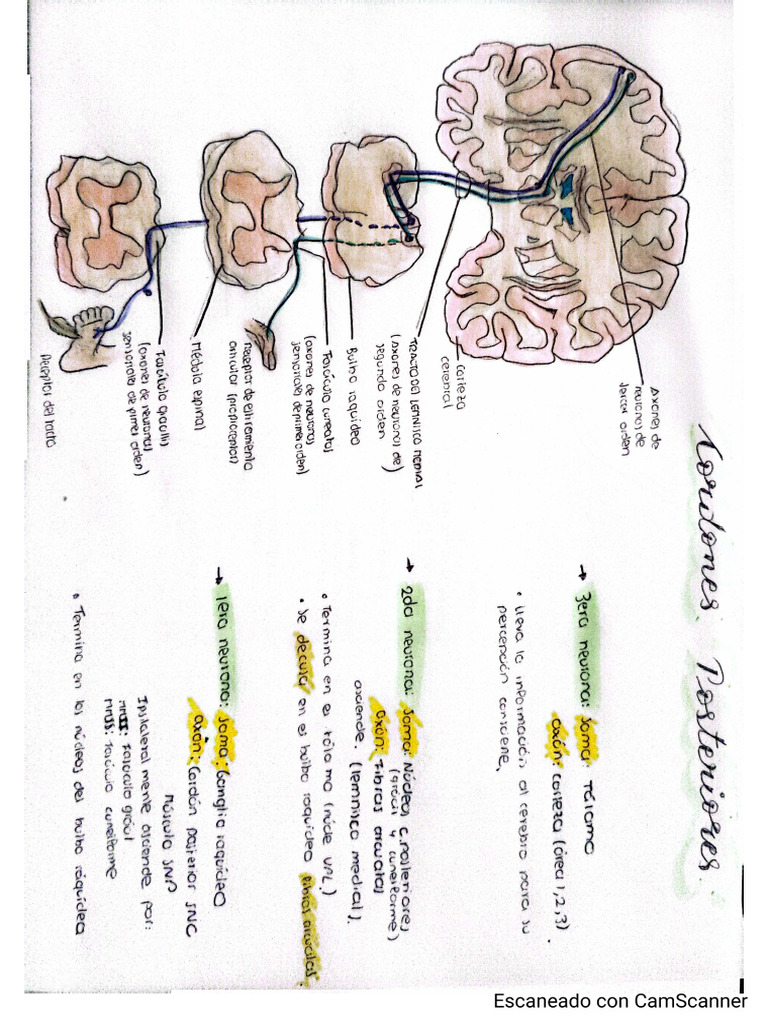 Cordones Posteriores.
Axones de
neuronas de
tercer orden
Corteza
cerebral
TRACTO DEL LEMNISCO MEDIAL
(Axones de neuronas de)
segundo orden
Bulbo raquídeo
Fascículo cuneatus
(axones de neuronas
sensoriales de primer orden)
Receptor de estiramiento
articular (propioceptor)
Médula espinal
Fascículo gracilis
(axones de neuronas
sensoriales de primer orden)
Receptor del tacto
→ 3era neurona: Soma: Tálamo
axón: corteza (área 1,2,3)
• lleva la información al cerebro para su
percepción consciente.
→ 2da neurona: Soma: Núcleos c. Posteriores
(grácil y cuneiforme)
axón: Fibras arcuatas
asciende. (lemnisco medial).
• Termina en el tálamo (núcle VPL.)
• Se decusa en el bulbo raquídeo fibras arcuatas.
→ 1era neurona: Soma: Ganglio raquídeo
axón: Cordón posterior SNC
Músculo SNP
Ipsilateral mente asciende por:
MMII: Fascículo grácil
MMSS: Fascículo cuneiforme
• Termina en los núcleos del bulbo ráquídea
Escaneado con CamScanner